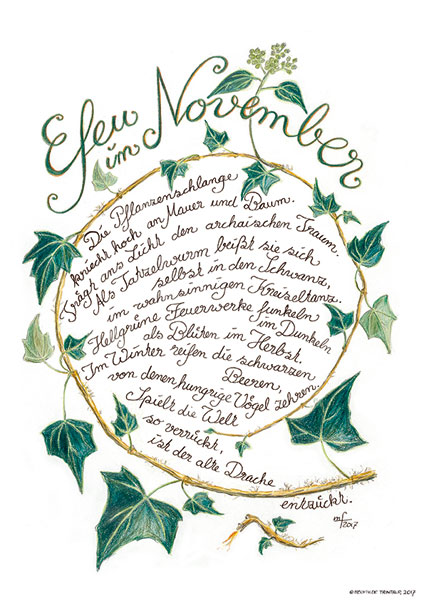 Efeu
im November
Die Pflanzenschlange
kriecht hoch an Mauer und Baum.
Trägt ans Licht den archaischen Traum.
Als Tatzelwurm beißt sie sich
selbst in den Schwanz,
im wahnsinnigen Kreiseltanz.
Hellgrüne Feuerwerke funkeln
im Dunkeln
als Blüten im Herbst.
Im Winter reifen die schwarzen
Beeren,
von denen hungrige Vögel zehren.
Spielt die Welt
so verrückt,
ist der alte Drache
entzückt.
mf
2017
2017